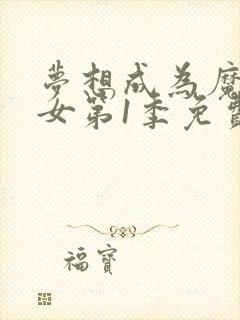 夢想成為魔
女第1季免費
福寶